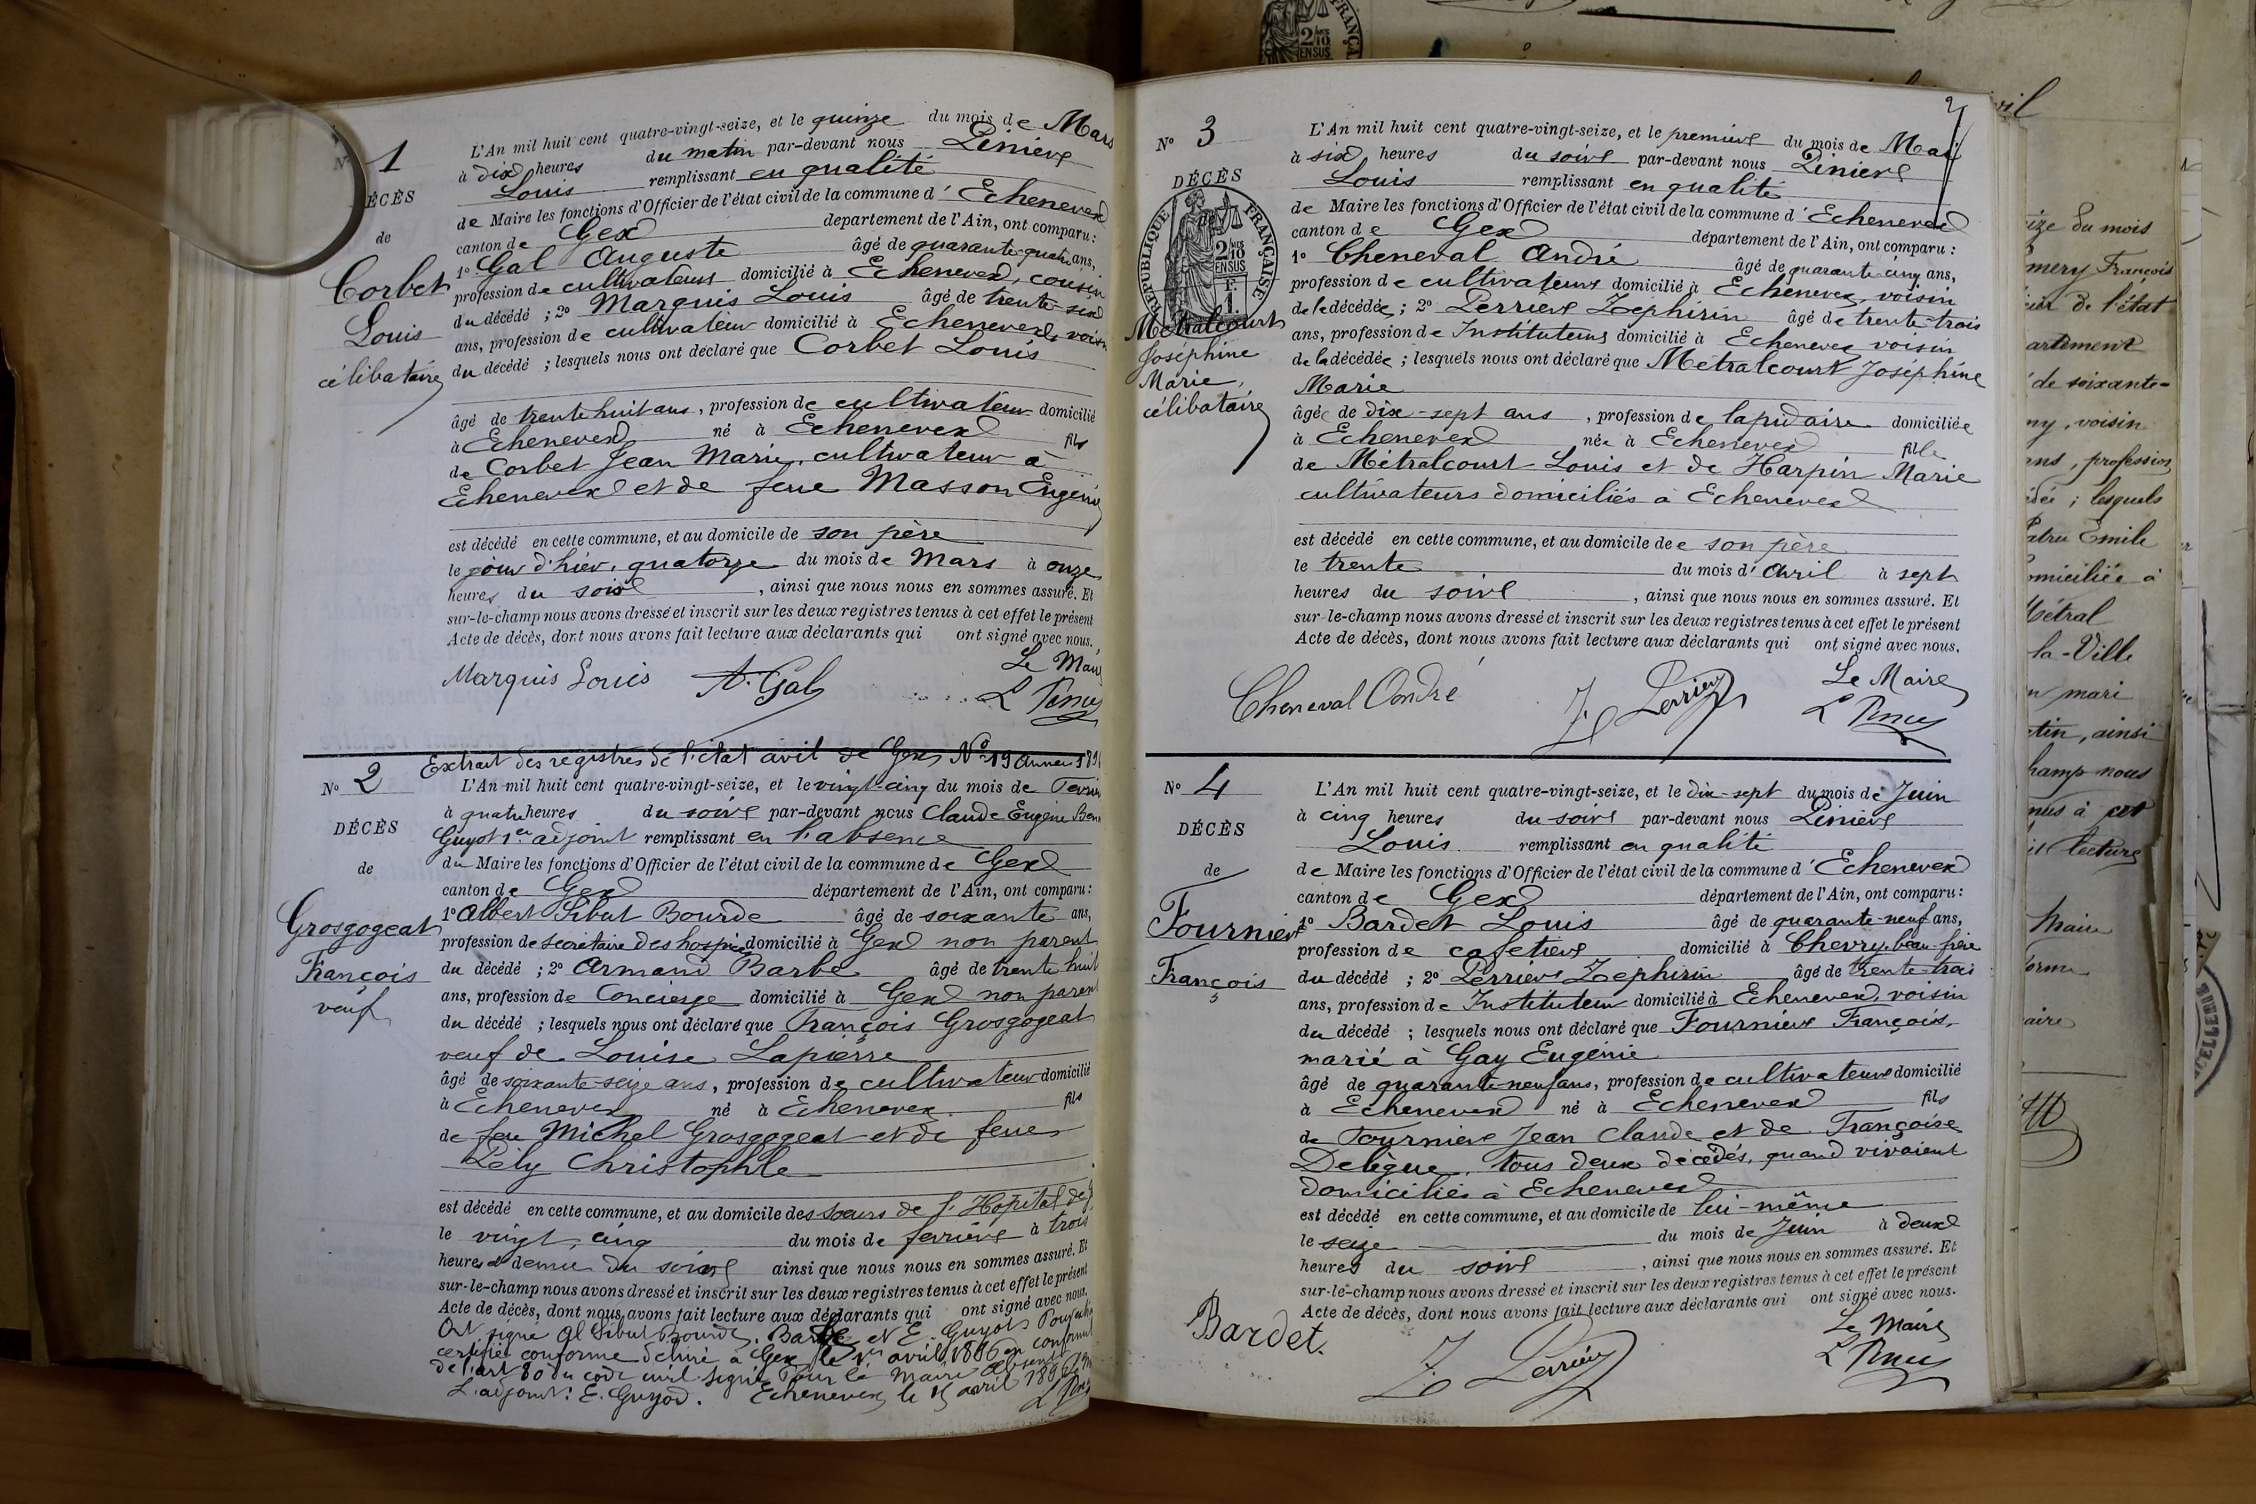 N° 1
DÉCÈS
de
Corbet
Louis
célibataire
L'An mil huit cent quatre-vingt-seize, et le quinze du mois de Mars
à dix heures du matin par-devant nous Périnier
Louis remplissant en qualité
de Maire les fonctions d'Officier de l'état civil de la commune d'Echenevex
canton de Gex département de l'Ain, ont comparu :
1° Gal Auguste âgé de quarante-quatre ans,
profession de cultivateur domicilié à Echenevex, cousin
du décédé ; 2° Marquis Louis âgé de trente-six
ans, profession de cultivateur domicilié à Echenevex, voisin
du décédé ; lesquels nous ont déclaré que Corbet Louis
âgé de trente huit ans, profession de cultivateur domicilié
à Echenevex né à Echenevex fils
de Corbet Jean Marie, cultivateur à
Echenevex et de feue Masson Eugénie
est décédé en cette commune, et au domicile de son père
le jour d'hier, quatorze du mois de Mars à onze
heures du soir, ainsi que nous nous en sommes assuré. Et
sur-le-champ nous avons dressé et inscrit sur les deux registres tenus à cet effet le présent
Acte de décès, dont nous avons fait lecture aux déclarants qui ont signé avec nous.
Le Maire
Marquis Louis A. Gal
Extrait des registres de l'état civil de Gex N° 19 année 189
N° 2
DÉCÈS
de
Grosgogeat
François
veuf
L'An mil huit cent quatre-vingt-seize, et le vingt-cinq du mois de Février
à quatre heures du soir par-devant nous Claude Eugène
Guyot 1er adjoint remplissant en l'absence
du Maire les fonctions d'Officier de l'état civil de la commune de Gex
canton de Gex département de l'Ain, ont comparu :
1° Albert Sibut Bourde âgé de soixante ans,
profession de secrétaire des hospices domicilié à Gex non parent
du décédé ; 2° Armand Barbe âgé de trente huit
ans, profession de Concierge domicilié à Gex non parent
du décédé ; lesquels nous ont déclaré que François Grosgogeat
veuf de Louise Lapierre
âgé de soixante-seize ans, profession de cultivateur domicilié
à Echenevex né à Echenevex fils
de feu Michel Grosgogeat et de feue
Pély Christophle
est décédé en cette commune, et au domicile des soeurs de l'Hôpital de
le vingt, cinq du mois de février à trois
heures et demie du soir ainsi que nous nous en sommes assuré. Et
sur-le-champ nous avons dressé et inscrit sur les deux registres tenus à cet effet le présent
Acte de décès, dont nous avons fait lecture aux déclarants qui ont signé avec nous.
Ont signé Al Sibut Bourde, Barbe et E. Guyot Pour
certifié conforme délivré à Gex le 1er avril 1896 en conformité
de l'art 80 du code civil signé Pour le Maire absent
L'adjoint : E. Guyot. Echenevex le 15 avril 1896
2
N° 3
DÉCÈS
de
RÉPUBLIQUE FRANÇAISE
2/10 EN SUS
F. 1.
Métralcourt
Joséphine
Marie,
célibataire
L'An mil huit cent quatre-vingt-seize, et le premier du mois de Mai
à six heures du soir par-devant nous Périnier
Louis remplissant en qualité
de Maire les fonctions d'Officier de l'état civil de la commune d'Echenevex
canton de Gex département de l'Ain, ont comparu :
1° Cheneval André âgé de quarante-cinq ans,
profession de cultivateur domicilié à Echenevex, voisin
de la décédée ; 2° Perrier Zéphirin âgé de trente-trois
ans, profession de Instituteur domicilié à Echenevex voisin
de la décédée ; lesquels nous ont déclaré que Métralcourt Joséphine
Marie
âgée de dix-sept ans, profession de lapidaire domiciliée
à Echenevex née à Echenevex fille
de Métralcourt Louis et de Harpin Marie
cultivateurs domiciliés à Echenevex
est décédé en cette commune, et au domicile de son père
le trente du mois d'Avril à sept
heures du soir, ainsi que nous nous en sommes assuré. Et
sur-le-champ nous avons dressé et inscrit sur les deux registres tenus à cet effet le présent
Acte de décès, dont nous avons fait lecture aux déclarants qui ont signé avec nous.
Le Maire
Cheneval André Z. Perrier
N° 4
DÉCÈS
de
Fournier
François
L'An mil huit cent quatre-vingt-seize, et le dix-sept du mois de Juin
à cinq heures du soir par-devant nous Périnier
Louis remplissant en qualité
de Maire les fonctions d'Officier de l'état civil de la commune d'Echenevex
canton de Gex département de l'Ain, ont comparu :
1° Bardet Louis âgé de quarante-neuf ans,
profession de cafetier domicilié à Chevry, beau-frère
du décédé ; 2° Perrier Zéphirin âgé de trente-trois
ans, profession de Instituteur domicilié à Echenevex, voisin
du décédé ; lesquels nous ont déclaré que Fournier François,
marié à Gay Eugénie
âgé de quarante-neuf ans, profession de cultivateur domicilié
à Echenevex né à Echenevex fils
de Fournier Jean Claude et de Françoise
Delègue, tous deux décédés, quand vivaient
domiciliés à Echenevex
est décédé en cette commune, et au domicile de lui-même
le seize du mois de Juin à deux
heures du soir, ainsi que nous nous en sommes assuré. Et
sur-le-champ nous avons dressé et inscrit sur les deux registres tenus à cet effet le présent
Acte de décès, dont nous avons fait lecture aux déclarants qui ont signé avec nous.
Le Maire
Bardet. Z. Perrier
du mois
François
de l'état
artement
de soixante-
voisin
profession
; lesquels
Emile
omiciliée à
Métral
la-Ville
mari
tin, ainsi
hamp nous
lecture
Maire